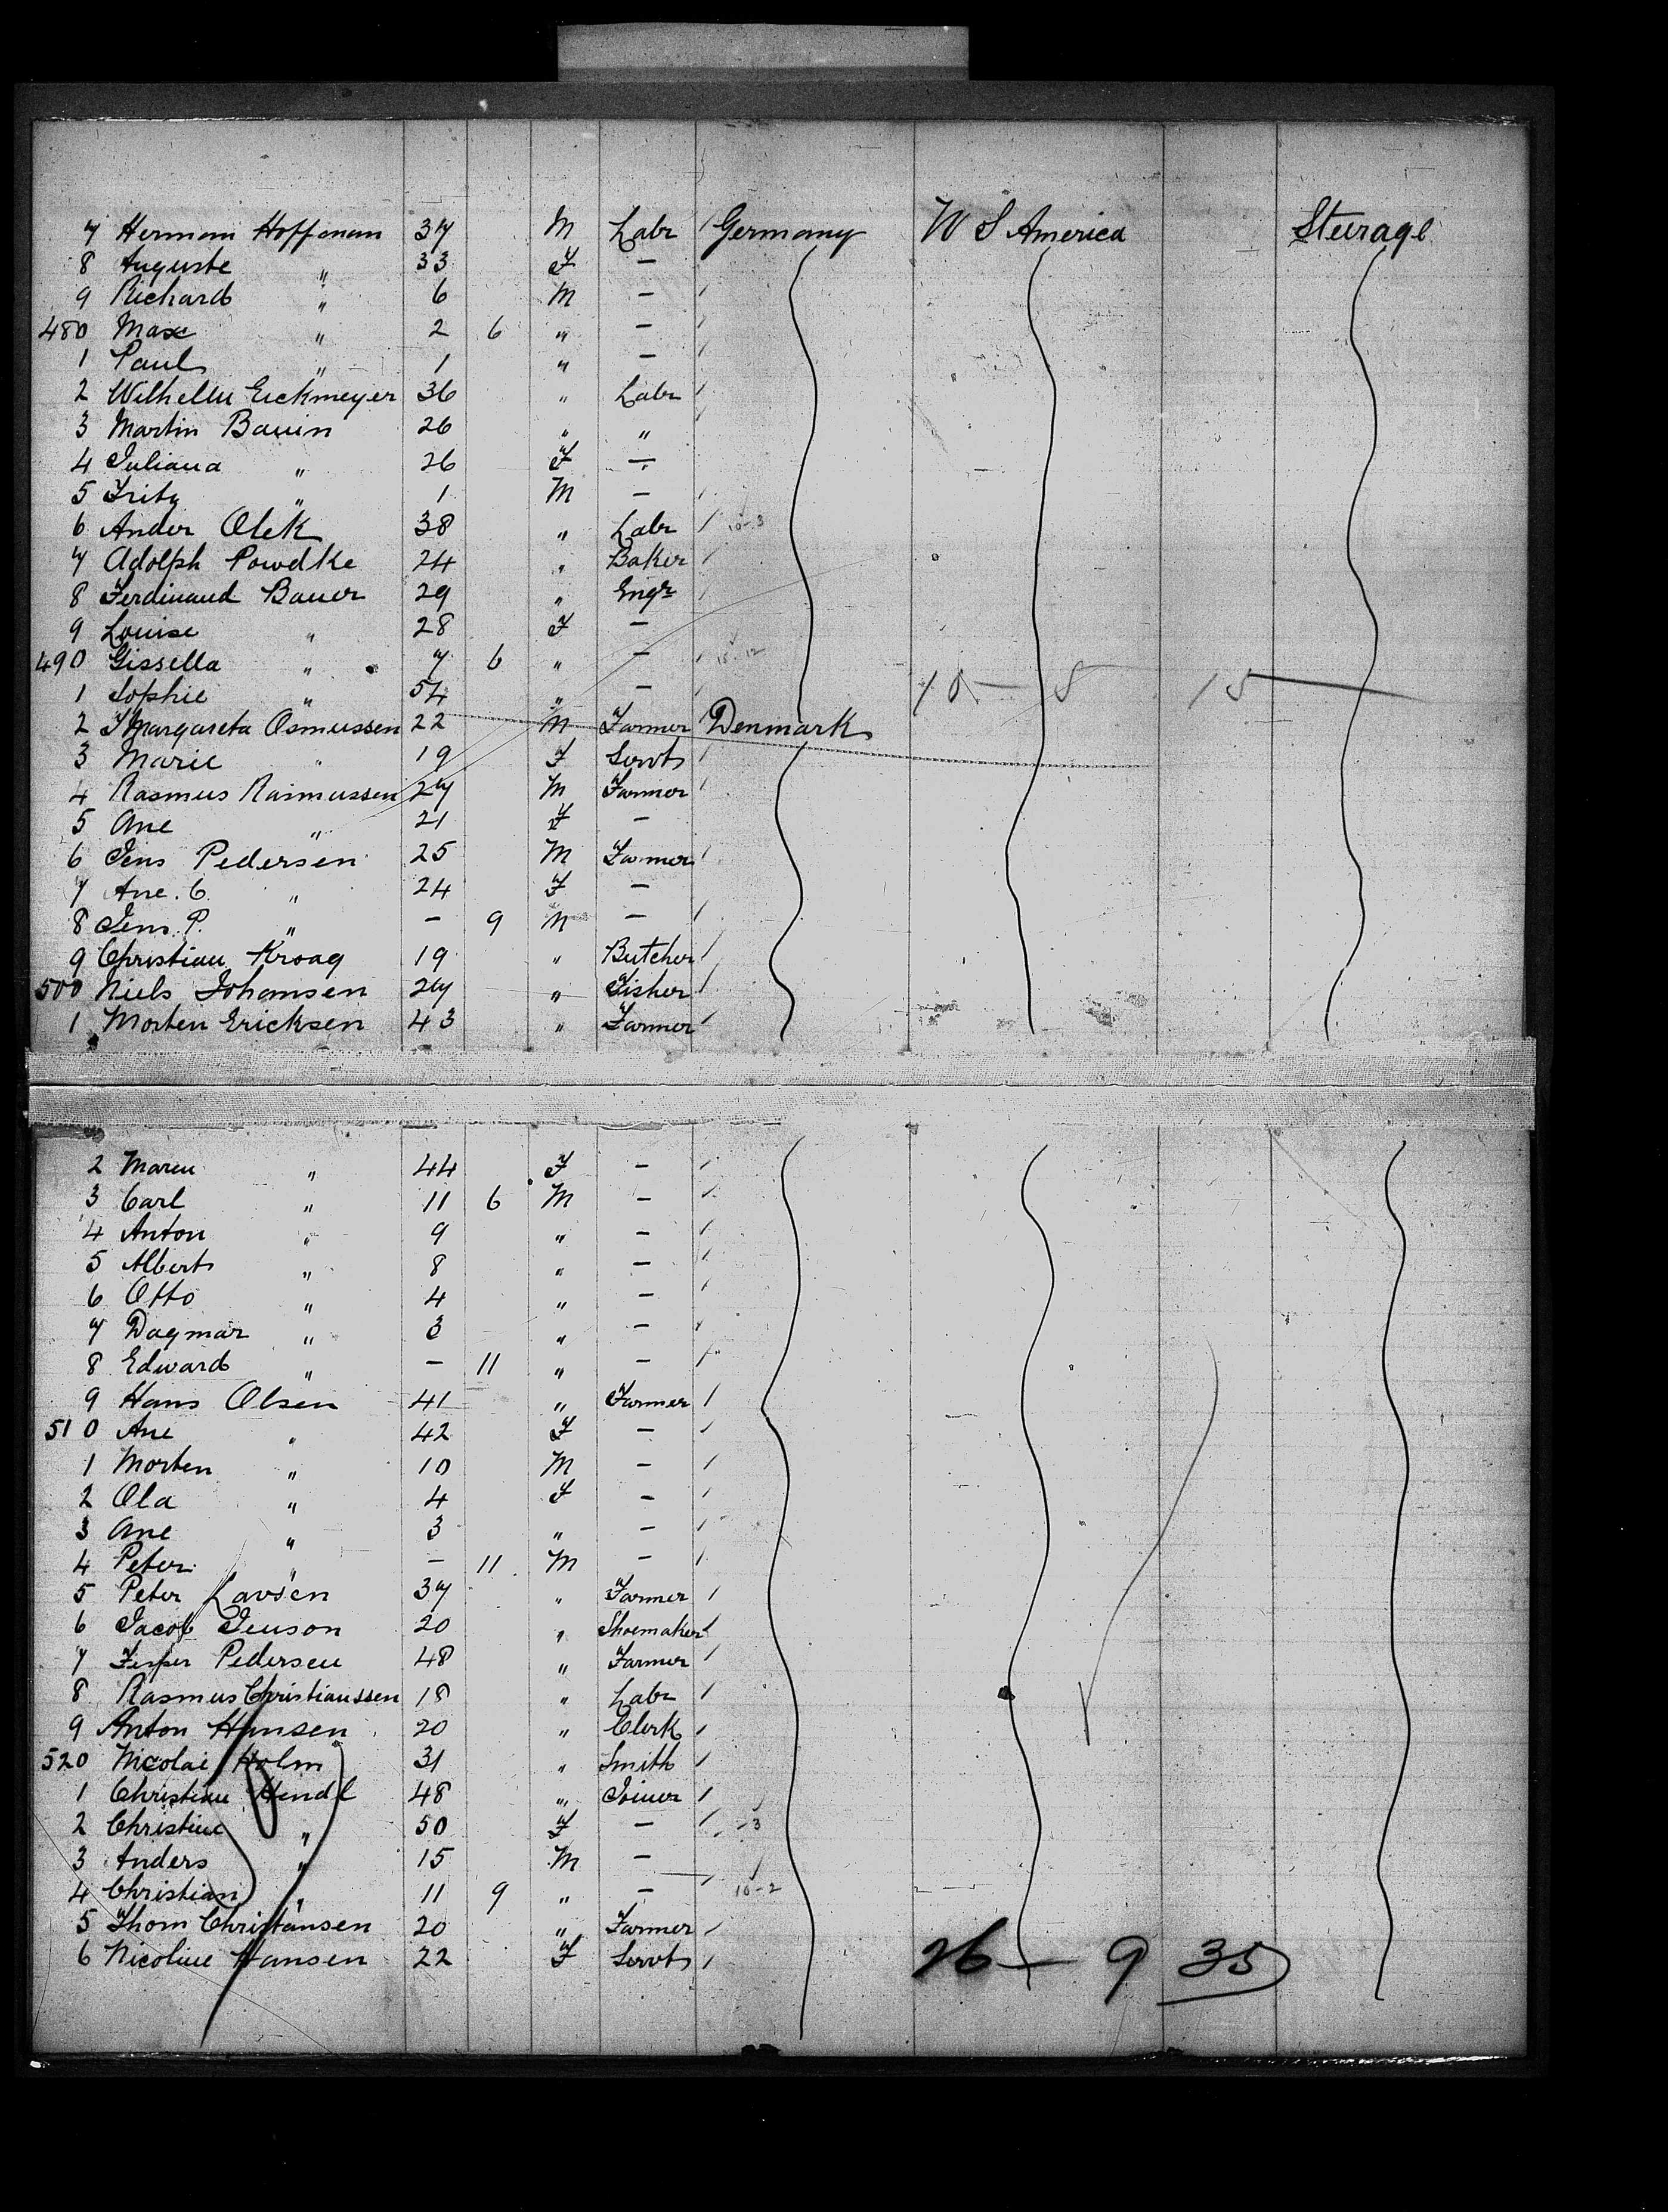 7 Hermam Hoffmann 37 M Labr Germany W S America Steurage
8 Auguste " 33 F —
9 Richard " 6 M —
480 Max " 2 6 " —
1 Paul " 1 " —
2 Wilhellu Eickmeyer 36 " Labr
3 Martin Bauin 26 " "
4 Juliana " 26 F —
5 Fritz " 1 M —
6 Ander Olek 38 " Labr 10-3
7 Adolph Powdke 24 " Baker
8 Ferdinand Bauer 29 " Engr
9 Louise " 28 F —
490 Gissella " 7 6 " — 15-12
1 Sophie " 54 " — 10 — 8 15
2 Margareta Osmussen 22 M Farmer Denmark
3 Marie " 19 F Servt
4 Rasmus Rasmussen 27 M Farmer
5 Ane " 21 F —
6 Jens Pedersen 25 M Farmer
7 Ane. C " 24 F —
8 Jens. P. " — 9 M —
9 Christian Kroag 19 " Butcher
500 Niels Johansen 27 " Fisher
1 Morten Ericksen 43 " Farmer
2 Maren " 44 F —
3 Carl " 11 6 M —
4 Anton " 9 " —
5 Albert " 8 " —
6 Otto " 4 " —
7 Dagmar " 3 " —
8 Edward " — 11 " —
9 Hans Olsen 41 " Farmer
510 Ane " 42 F —
1 Morten " 10 M —
2 Ola " 4 F —
3 Ane " 3 " —
4 Peter " — 11 M —
5 Peter Lavsen 37 " Farmer
6 Jacob Jenson 20 " Shoemaker
7 Jesper Pedersen 48 " Farmer
8 Rasmus Christianssen 18 " Labr
9 Anton Hansen 20 " Clerk
520 Nicolai Holm 31 " Smith
1 Christian Hendl 48 " Joiner
2 Christine " 50 F — -3
3 Anders " 15 M —
4 Christian " 11 9 " — 10-2
5 Thom Christansen 20 " Farmer
6 Nicoline Hansen 22 F Servt 26 — 9 35